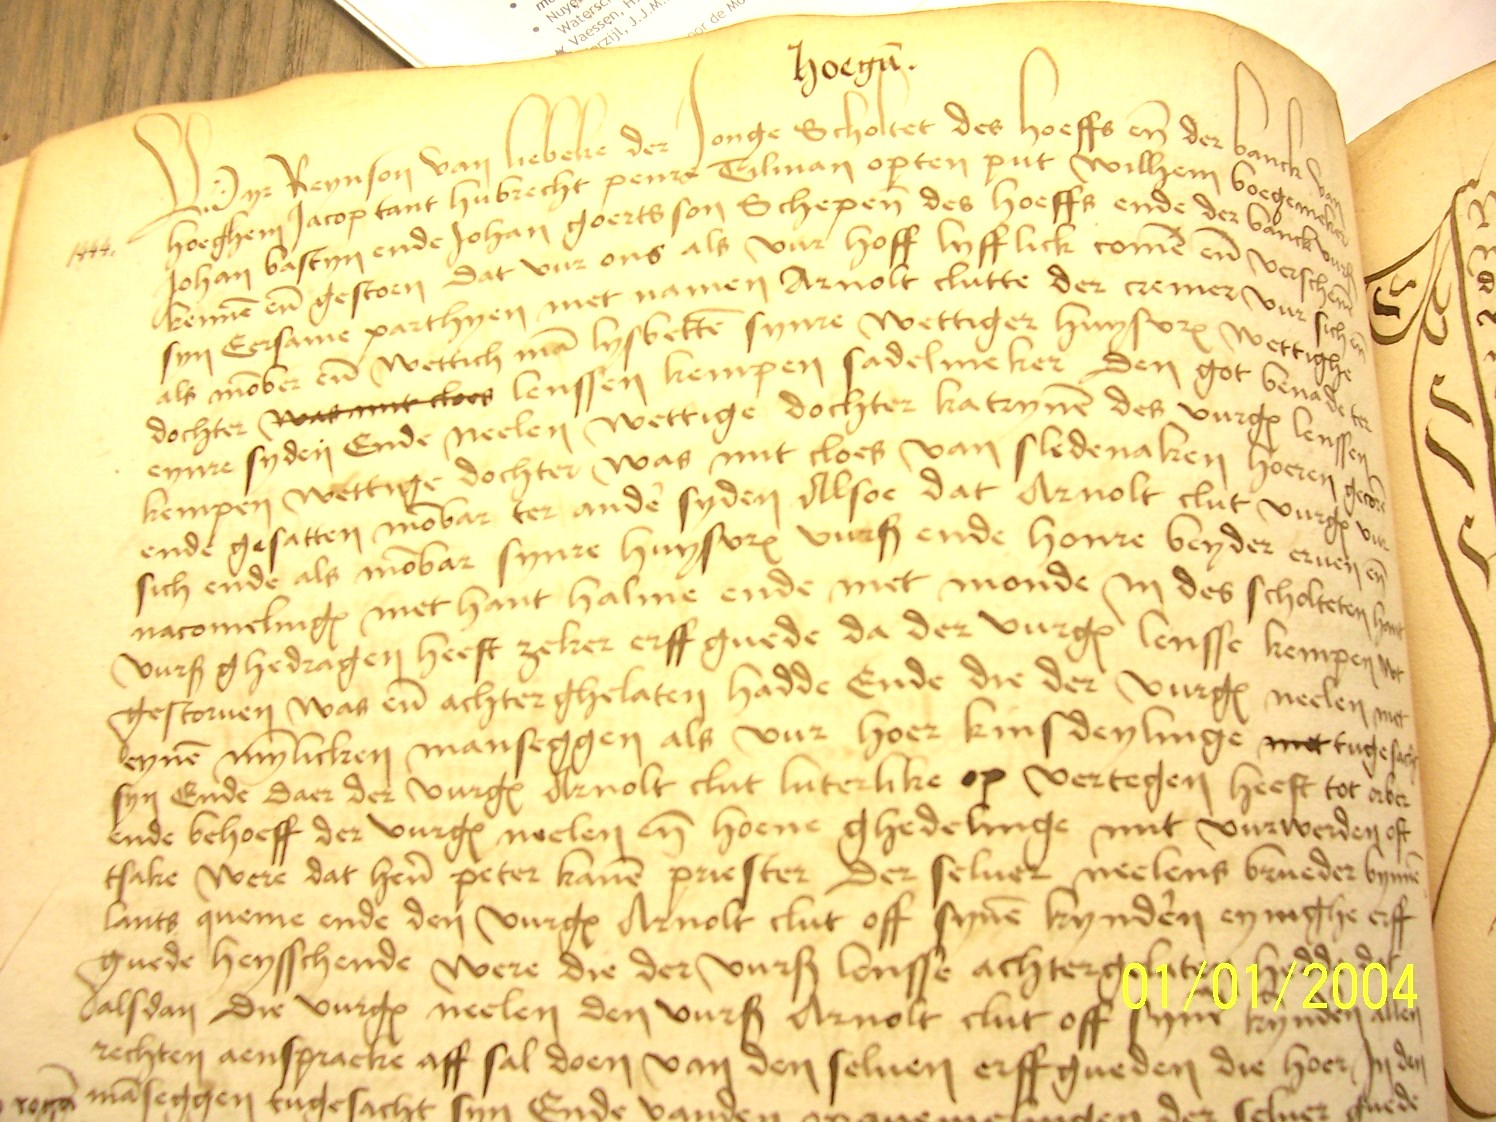 hoegū.
Wyr Reynson van liebeke der Jonge Scholtet des hoeffs eñ der banck van
hoeghem Jacop tant hubrecht penre Tilman opten put wilhem boegemeker
1444.
Johan bastyn ende Johan goertsson Schepen des hoeffs ende der banck vurß
kennē eñ gestoen dat vur ons als vur hoff lyfflick comē eñ verschenē
syn Eersame parthyen met namen Arnolt clutte der cremer vur sich eñ
als mōber eñ wettich mā lysbettē synre wettiger huysvrx wettighe
dochter was mit cloes lenssen kempen sadelmeker den got benade ter
eynre syden Ende neelen wettige dochter katrynē des vurgx lenssen
kempen wettige dochter was mit cloes van sledenaken hoeren gecore
ende gesatten mōbar ter ander syden Alsoe dat Arnolt clut vurgx vur
sich ende als mōbar synre huysvrx vurß ende honre beyder eruen eñ
nacomelingx met hant halme ende met monde In des scholteten hant
vurß ghedragen heeft zeker erff guede da der vurgx lensse kempen
gestoruen was eñ achterghelaten hadde Ende die der vurgx neelen met
eynē mylicken manseggen als vur hoer kinsdeylinge met tugesacht
syn Ende daer der vurgx Arnolt clut luterlike op vertegen heeft tot orber
ende behoeff der vurgx neelen eñ hoene ghedelinge mit vurwerden oft
tsake were dat heñ peter kanē priester der seluer neelens brueder bynnē
lants queme ende den vurgx Arnolt clut off synē kynden eynighe erff
guede heysschende were die der vurß lensse achtergelaten hedde dat
alsdan die vurgx neelen den vurß Arnolt clut off synē kynden allen
rechten aenspracke aff sal doen van den seluen erffgueden die hoer In den
māseggen tugesacht syn Ende vanden der seluer guede
01/01/2004